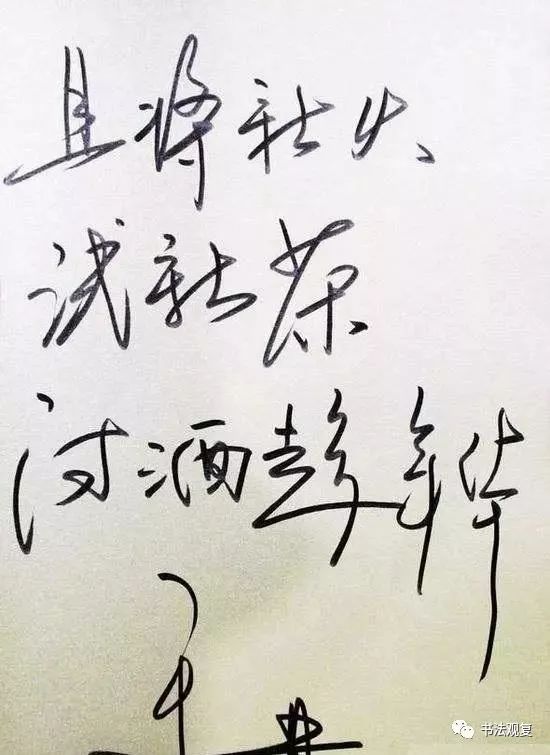 且将新火
试新茶
诗酒趁年华
书法观复